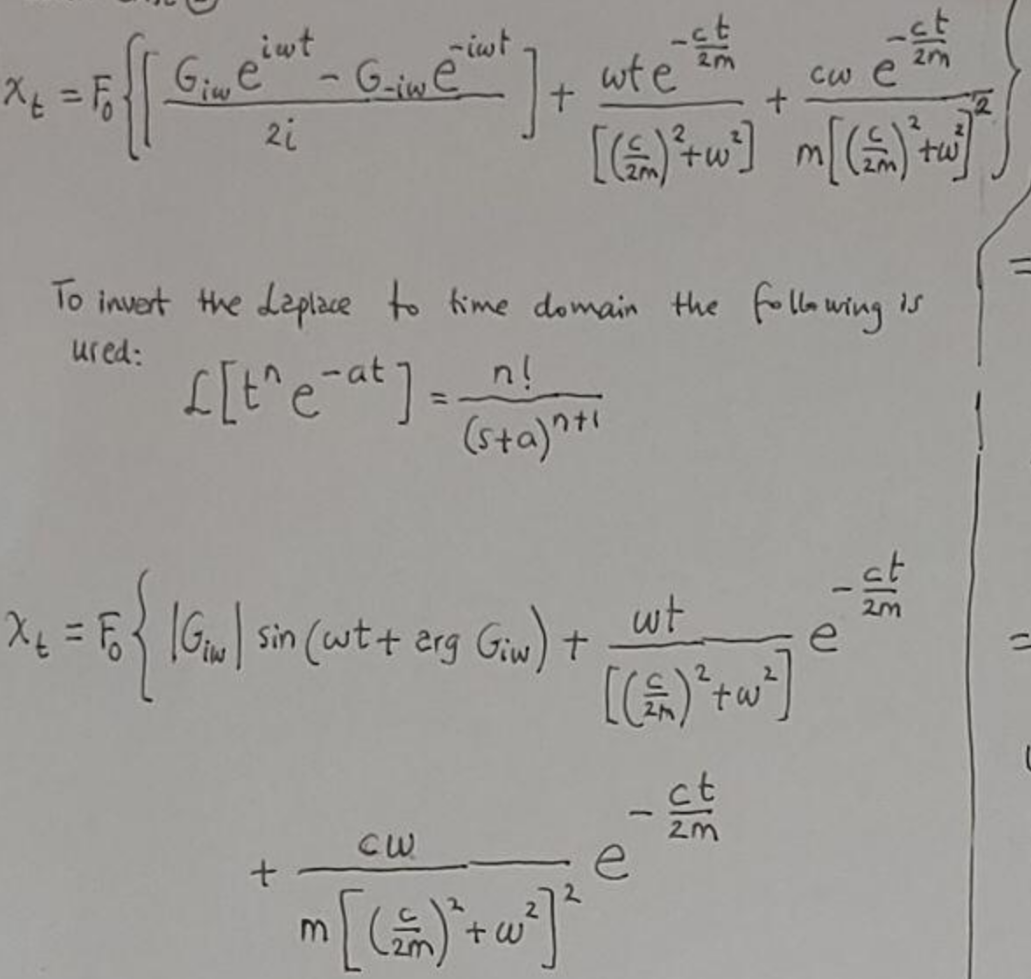 x_t = F_0 { [ (G_{iω} e^{iωt} - G_{-iω} e^{-iωt}) / 2i ] + ωt e^{-ct/2m} / [(c/2m)^2 + ω^2] + cω e^{-ct/2m} / m[(c/2m)^2 + ω^2]^2 }
To invert the Laplace to time domain the following is
used:
ℒ[t^n e^{-at}] = n! / (s+a)^{n+1}
x_t = F_0 { |G_{iω}| sin(ωt + arg G_{iω}) + ωt / [(c/2m)^2 + ω^2] e^{-ct/2m}
+ cω / m[(c/2m)^2 + ω^2]^2 e^{-ct/2m}
=
=